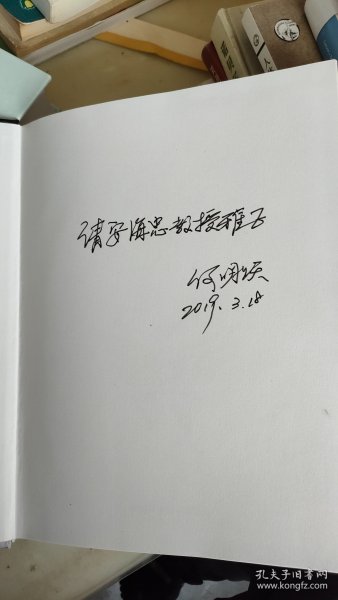 请安海忠教授雅正
何明
2019.3.18
孔夫子旧书网
www.kongfz.com